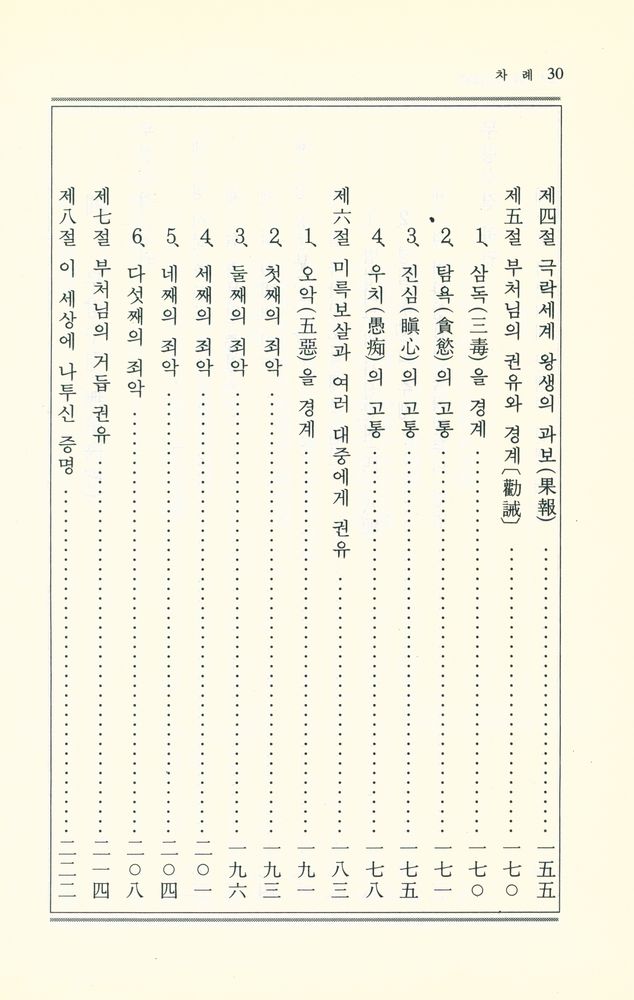 차 례 30
제四절 극락세계 왕생의 과보(果報) 一五五
제五절 부처님의 권유와 경계〔勸誡〕 一七○
1、삼독(三毒)을 경계 一七○
2、탐욕(貪慾)의 고통 一七一
3、진심(瞋心)의 고통 一七五
4、우치(愚痴)의 고통 一七八
제六절 미륵보살과 여러 대중에게 권유 一八三
1、오악(五惡)을 경계 一九一
2、첫째의 죄악 一九三
3、둘째의 죄악 一九六
4、세째의 죄악 二○一
5、네째의 죄악 二○四
6、다섯째의 죄악 二○八
제七절 부처님의 거듭 권유 二一四
제八절 이 세상에 나투신 증명 二二二